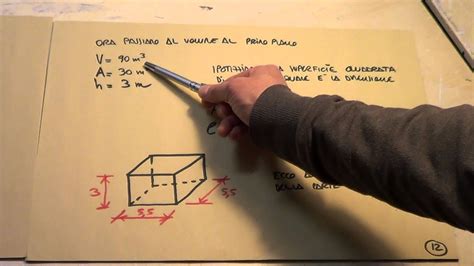 ORA PASSIAMO AL VOLUME AL PRIMO PIANO
V = 90 m³
A = 30 m
h = 3 m
IPOTIZZ LA SUPERFICIE QUADRATA
DI QUALE È LA DIMENSIONE
ECCO
DELLA PARTE
3
5,5
5,5
12